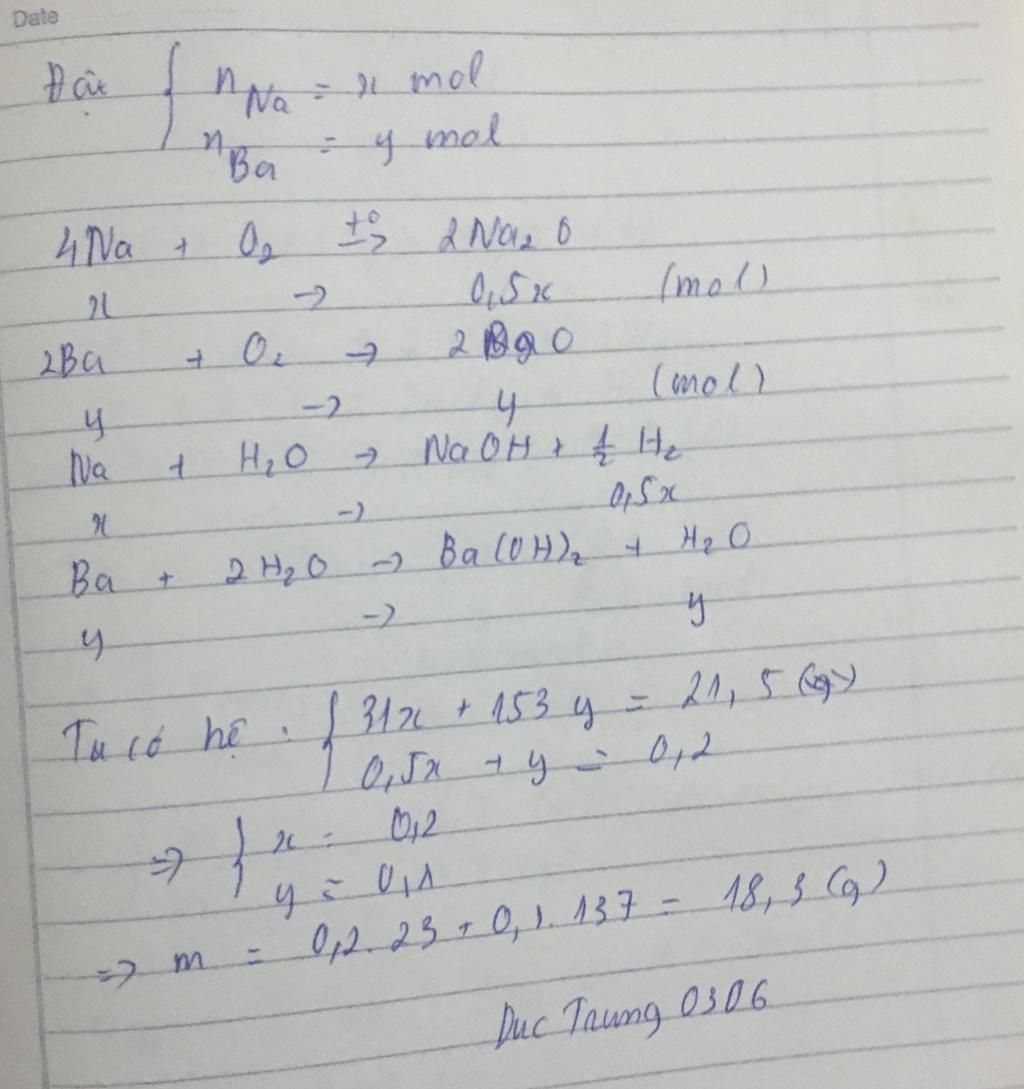 Date
Đặt { n_Na = x mol
n_Ba = y mol
4Na + O₂ t°→ 2Na₂O
x → 0,5x (mol)
2Ba + O₂ → 2BaO
y → y (mol)
Na + H₂O → NaOH + 1/2 H₂
x → 0,5x
Ba + 2H₂O → Ba(OH)₂ + H₂O
y → y
Ta có hệ : { 31x + 153y = 21,5 (g)
0,5x + y = 0,2
⇒ { x = 0,2
y = 0,1
⇒ m = 0,2.23 + 0,1.137 = 18,3 (g)
Duc Trung 0306